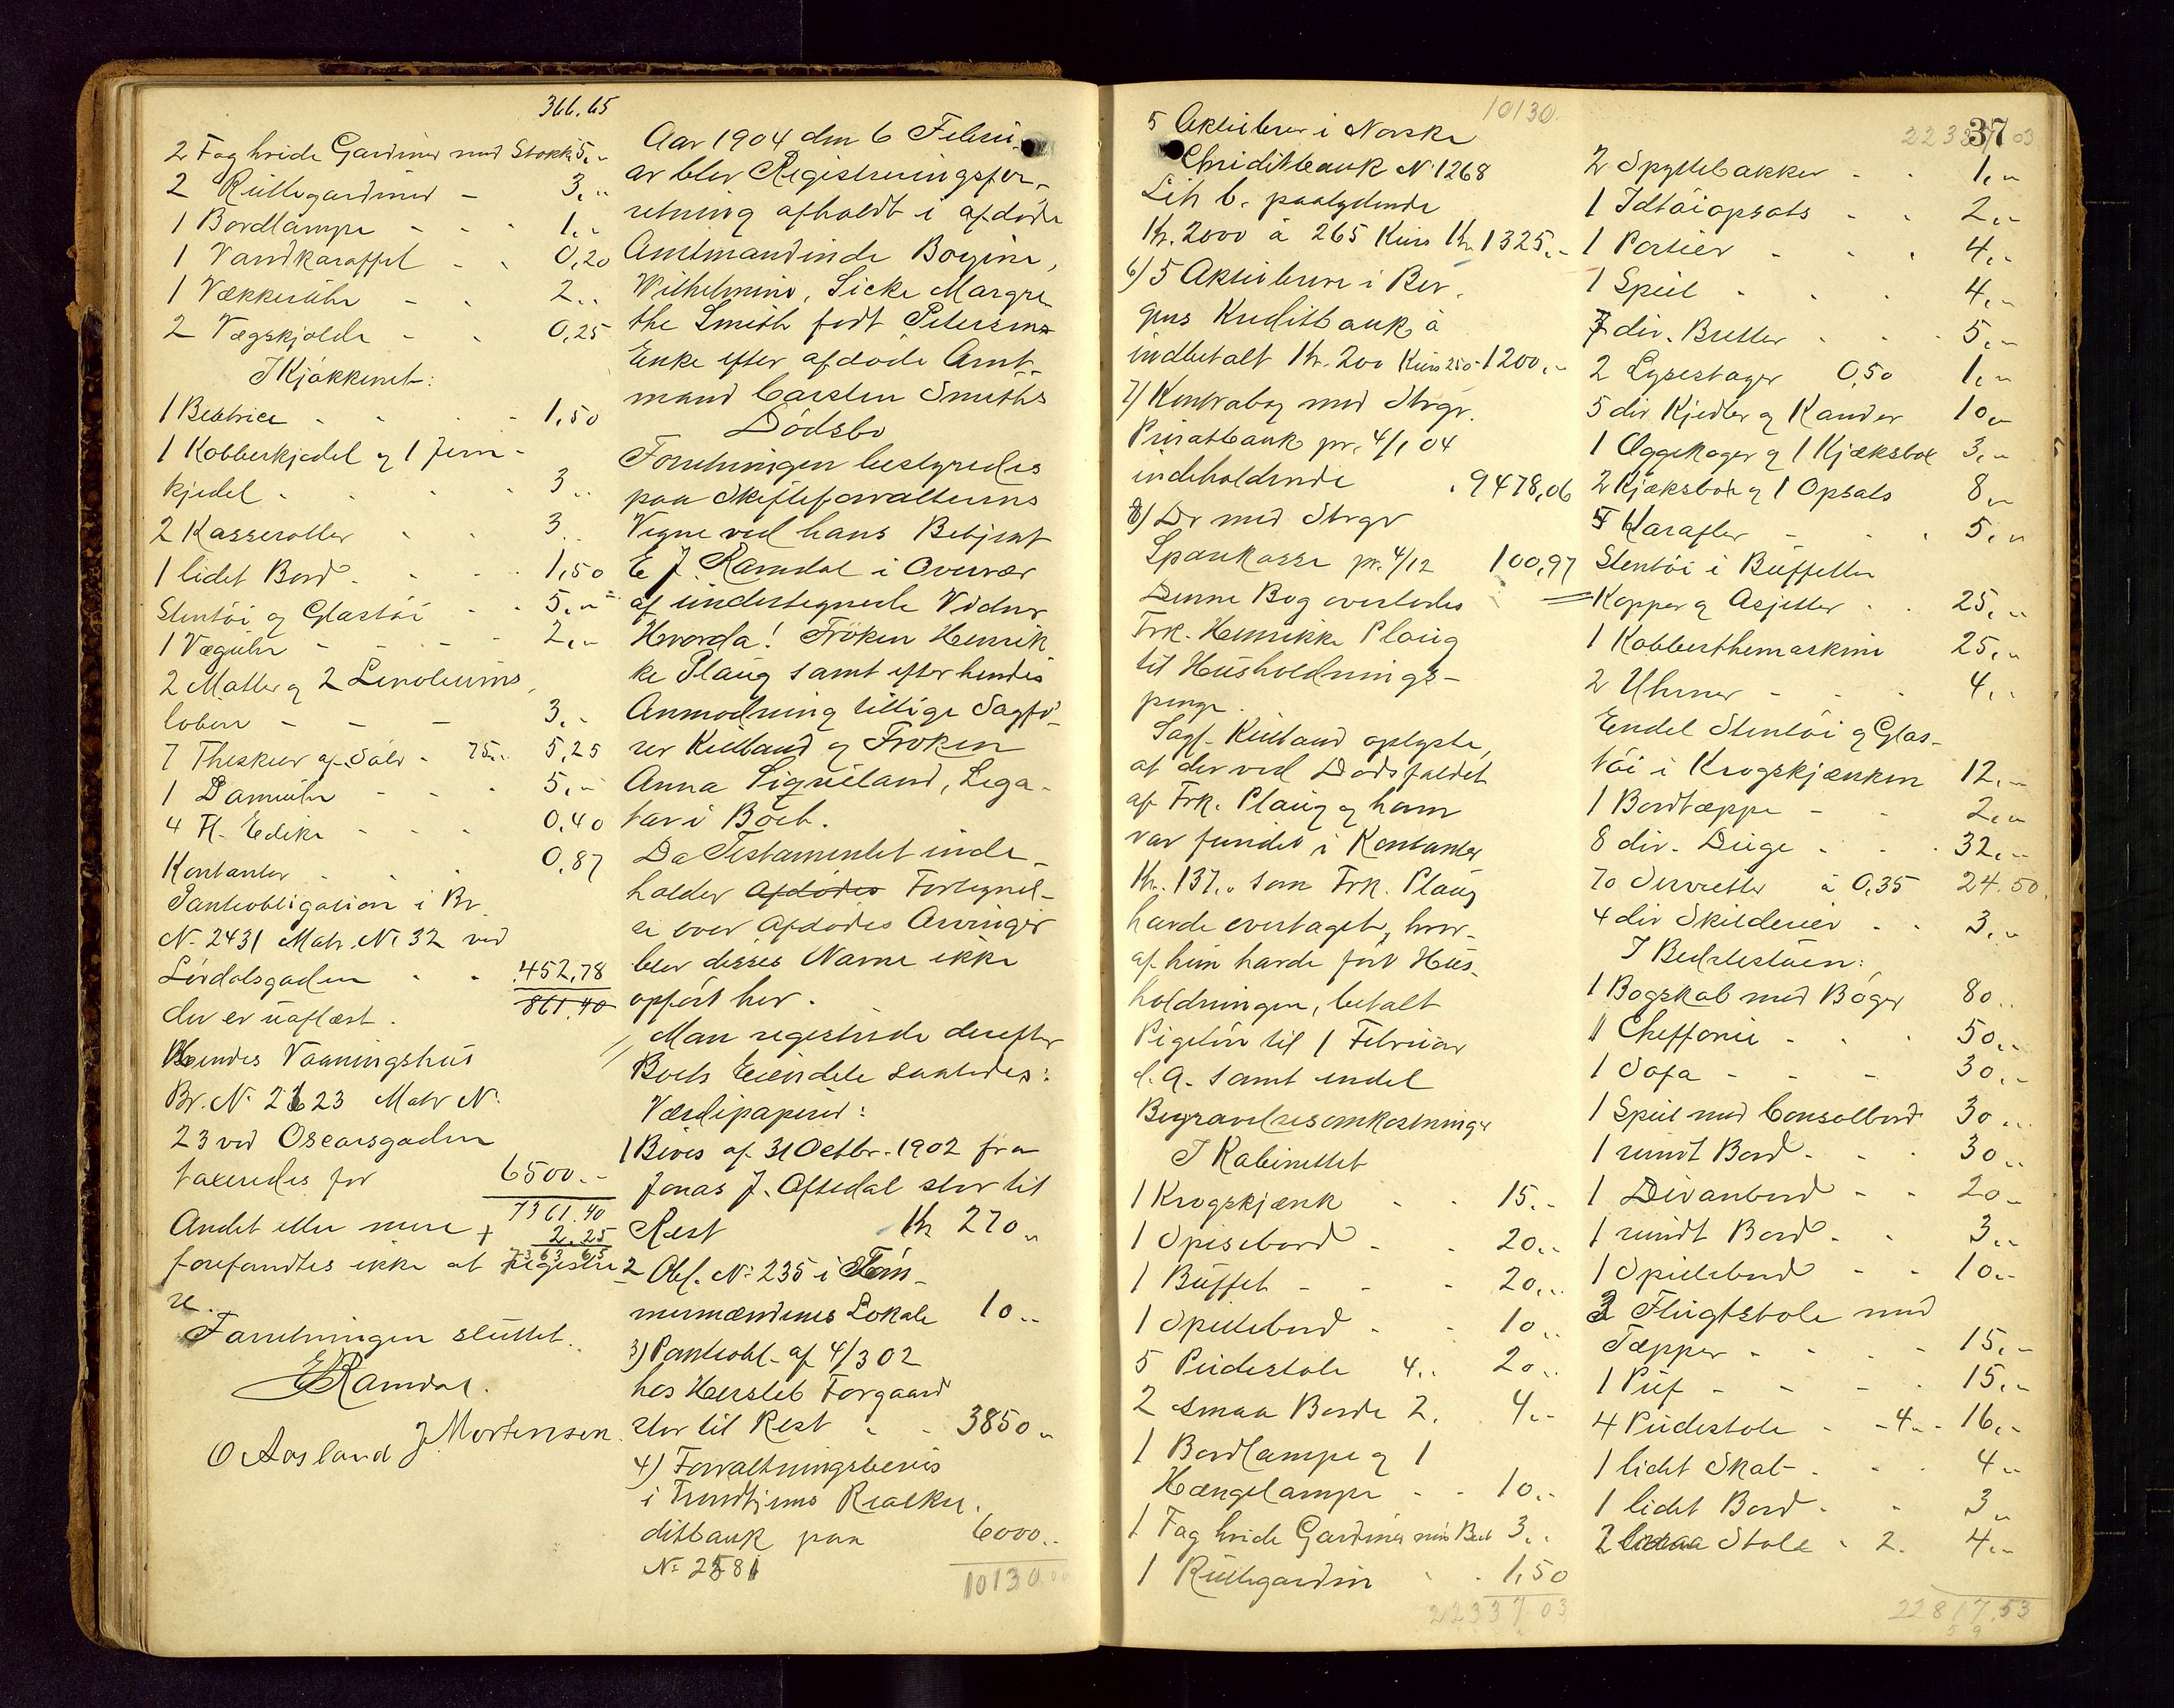 366.65
2 Fag hvide Gardiner med Stokk 5,-
2 Rullegardiner - 3,-
1 Bordlampe - - - 1,-
1 Vandkaraffel - - 0,20
1 Vækkeruhr - - 2,-
2 Vægskjolde - - 0,25
I Kjøkkenet:
1 Beatrice - - - 1,50
1 Kobberkjedel og 1 Jern-
kjedel - - - 3,-
2 Kasseroller - - 3,-
1 lidet Bord - - 1,50
Stentøi og Glastøi - - 5,-
1 Væguhr - - - 2,-
2 Matter og 2 Linoleums
løbere - - - 3,-
7 Theskeer af Sølv - 75.. 5,25
1 Dameuhr - - - 5,-
4 Fl. Edike - - - 0,40
Kontanter - - - 0,87
Panteobligation i Br.
N. 2431 Matr. N. 32 ved
Lørdalsgaden - - 452,78
861.40
der er uaflæst.
Hendes Vaaningshus
Br. N. 2623 Matr N.
23 ved Oscarsgaden
taxeredes for 6500.-
7361.40
Andet eller mere + 2.25
7363.65
forefandtes ikke at registre
re.
Forretningen sluttet.
E J Ramdal.
O Aasland J Mortensen.
Aar 1904 den 6 Febru-
ar blev Registreringsfor-
retning afholdt i afdøde
Amtmandinde Bogine,
Wilhelmine, Sicke Margre
the Smith født Petersens
Enke efter afdøde Amt-
mand Carsten Smiths
Dødsbo
Forretningen bestyredes
paa Skifteforvalterens
Vegne ved hans Betjent
E J. Ramdal i Overvær
af undertegnede Vidner
Hvorda! Frøken Henrik
ke Plaug samt efter hendes
Anmodning tillige Sagfø-
rer Kielland og Frøken
Anna Sigveland, Lega-
tar i Boet.
Da Testamentet inde-
holder afdødes Fortegnel-
se over Afdødes Arvinger
blev disses Navne ikke
opført her.
Man registrerede derefter
Boets Eiendele saaledes:
Værdipapirer:
1 Bevis af 31 Octbr. 1902 fra
Jonas J. Aftedal stor til
Rest Kr 270 „
2 Obl. N: 235 i Tøm-
mermændenes Lokale 10 „
3) Panteobl. af 4/3 02
hos Hersleb Forgaard
stor til Rest - - 3850 „
4) Forvaltningsbevis
i Trondhjems Realkre-
ditbank paa 6000..
N: 2581
10130.00
10130.
5 Aktiebreve i Norske
Creditbank N 1268
Lit b. paalydende
Kr. 2000 à 265 Kurs Kr. 1325,-
6) 5 Aktiebreve i Ber-
gens Kreditbank à
indbetalt Kr. 200 Kurs 250 - 1200,-
7) Kontrabog med Stvgr.
Privatbank pr. 4/1 04
indeholdende . 9478,06
8) Do med Stvgr
Sparekasse pr. 4/12 100,97
Denne Bog overlodes
Frk. Henrikke Plaug
til Husholdnings-
penge.
Sagf. Kielland oplyste,
at der ved Dødsfaldet
af Frk. Plaug og ham
var fundet i Kontanter
Kr. 137,- som Frk. Plaug
havde overtaget, hvor-
af hun havde ført Hus-
holdningen, betalt
Pigeløn til 1 Februar
d. A. samt endel
Begravelsesomkostninger
I Kabinettet
1 Krogskjænk - - 15.-
1 Spisebord - - 20.-
1 Buffet - - - 20,-
1 Spillebord - - 10 „
5 Pudestole 4.. 20 „
2 smaa Borde 2. 4,-
1 Bordlampe og 1
Hængelampe - - 10.-
1 Fag hvide Gardiner 3,-
1 Rullegardin - - 1,50
22337.03
37
22337.03
2 Spyttebakker - - 1,-
1 Istøiopsats - - 2,-
1 Portier - - - 4,-
1 Speil - - - 4,-
7 div. Bretter - - 5,-
2 Lysestager 0,50 1,-
5 div Kjedler og Kander 10 „
1 Æggekoger og 1 Kjæksbox 3,-
2 Kjæksboxe og 1 Opsats 8 „
5 Karafler - - - 5,-
Stentøi i Buffetten
Kopper og Asjetter - - 25,-
1 Kobberthemaskine 25,-
2 Uhrner - - - 4,-
Endel Stentøi og Glas-
tøi i Krogskjænken 12,-
1 Bordtæppe - - 2,-
8 div. Duge - - - 32,-
70 Servietter à 0,35 24.50
4 div Skilderier - - 3,-
I Bedstestuen:
1 Bogskab med Bøger 80..
1 Cheffonie - - - 50..
1 Sofa - - - 30,-
1 Speil med Consolbord 30 ...
1 rundt Bord - - 30 ..
1 Divanbord - - 20 -
1 rundt Bord - - 3..
1 Spillebord - - 10.-
3 Flugtstole med
Tæpper - - - 15,-
1 Puf - - - 15,-
4 Pudestole - - 4.. - 16,-
1 lidet Skab - - - 4 „
1 lidet Bord - - 3 „
2 Stole - 2. 4,-
22817.53